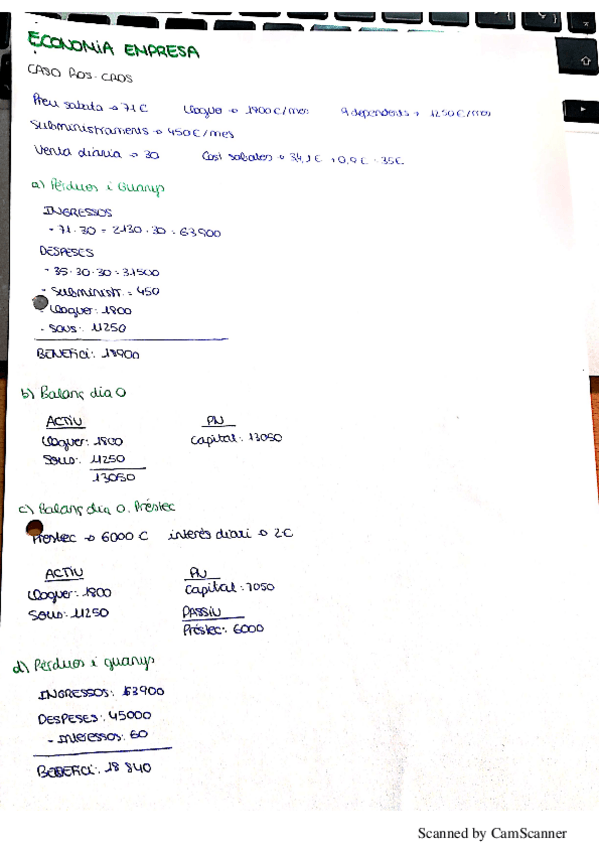 ECONOMIA EMPRESA
CASO ROS. CAOS
Preu sabata → 71 € Lloguer → 1800 €/mes 9 dependents → 1250 €/mes
Subministraments → 450 €/mes
Venta diària → 30 Cost sabates → 34,1 € + 0,9 € = 35 €
a) Pèrdues i Guanys
INGRESSOS
- 71 · 30 = 2130 · 30 = 63900
DESPESES
- 35 · 30 · 30 = 31500
- Subministr. = 450
- Lloguer: 1800
- Sous: 11250
BENEFICI: 18900
b) Balanç dia 0
ACTIU PN
Lloguer: 1800 Capital: 13050
Sous: 11250
13050
c) Balanç dia 0. Préstec
Préstec → 6000 € interès diari → 2 €
ACTIU PN
Lloguer: 1800 Capital: 7050
Sous: 11250 PASSIU
Préstec: 6000
d) Pèrdues i guanys
INGRESSOS: 63900
DESPESES: 45000
- Interessos: 60
BENEFICI: 18 840
Scanned by CamScanner